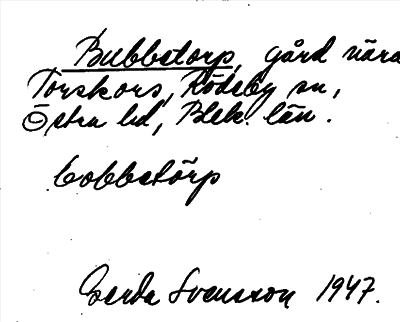 Bubbetorp, gård nära
Torskors, Rödeby sn,
Östra hd, Blek. län.
bobbetörp
Gerda Svensson 1947.